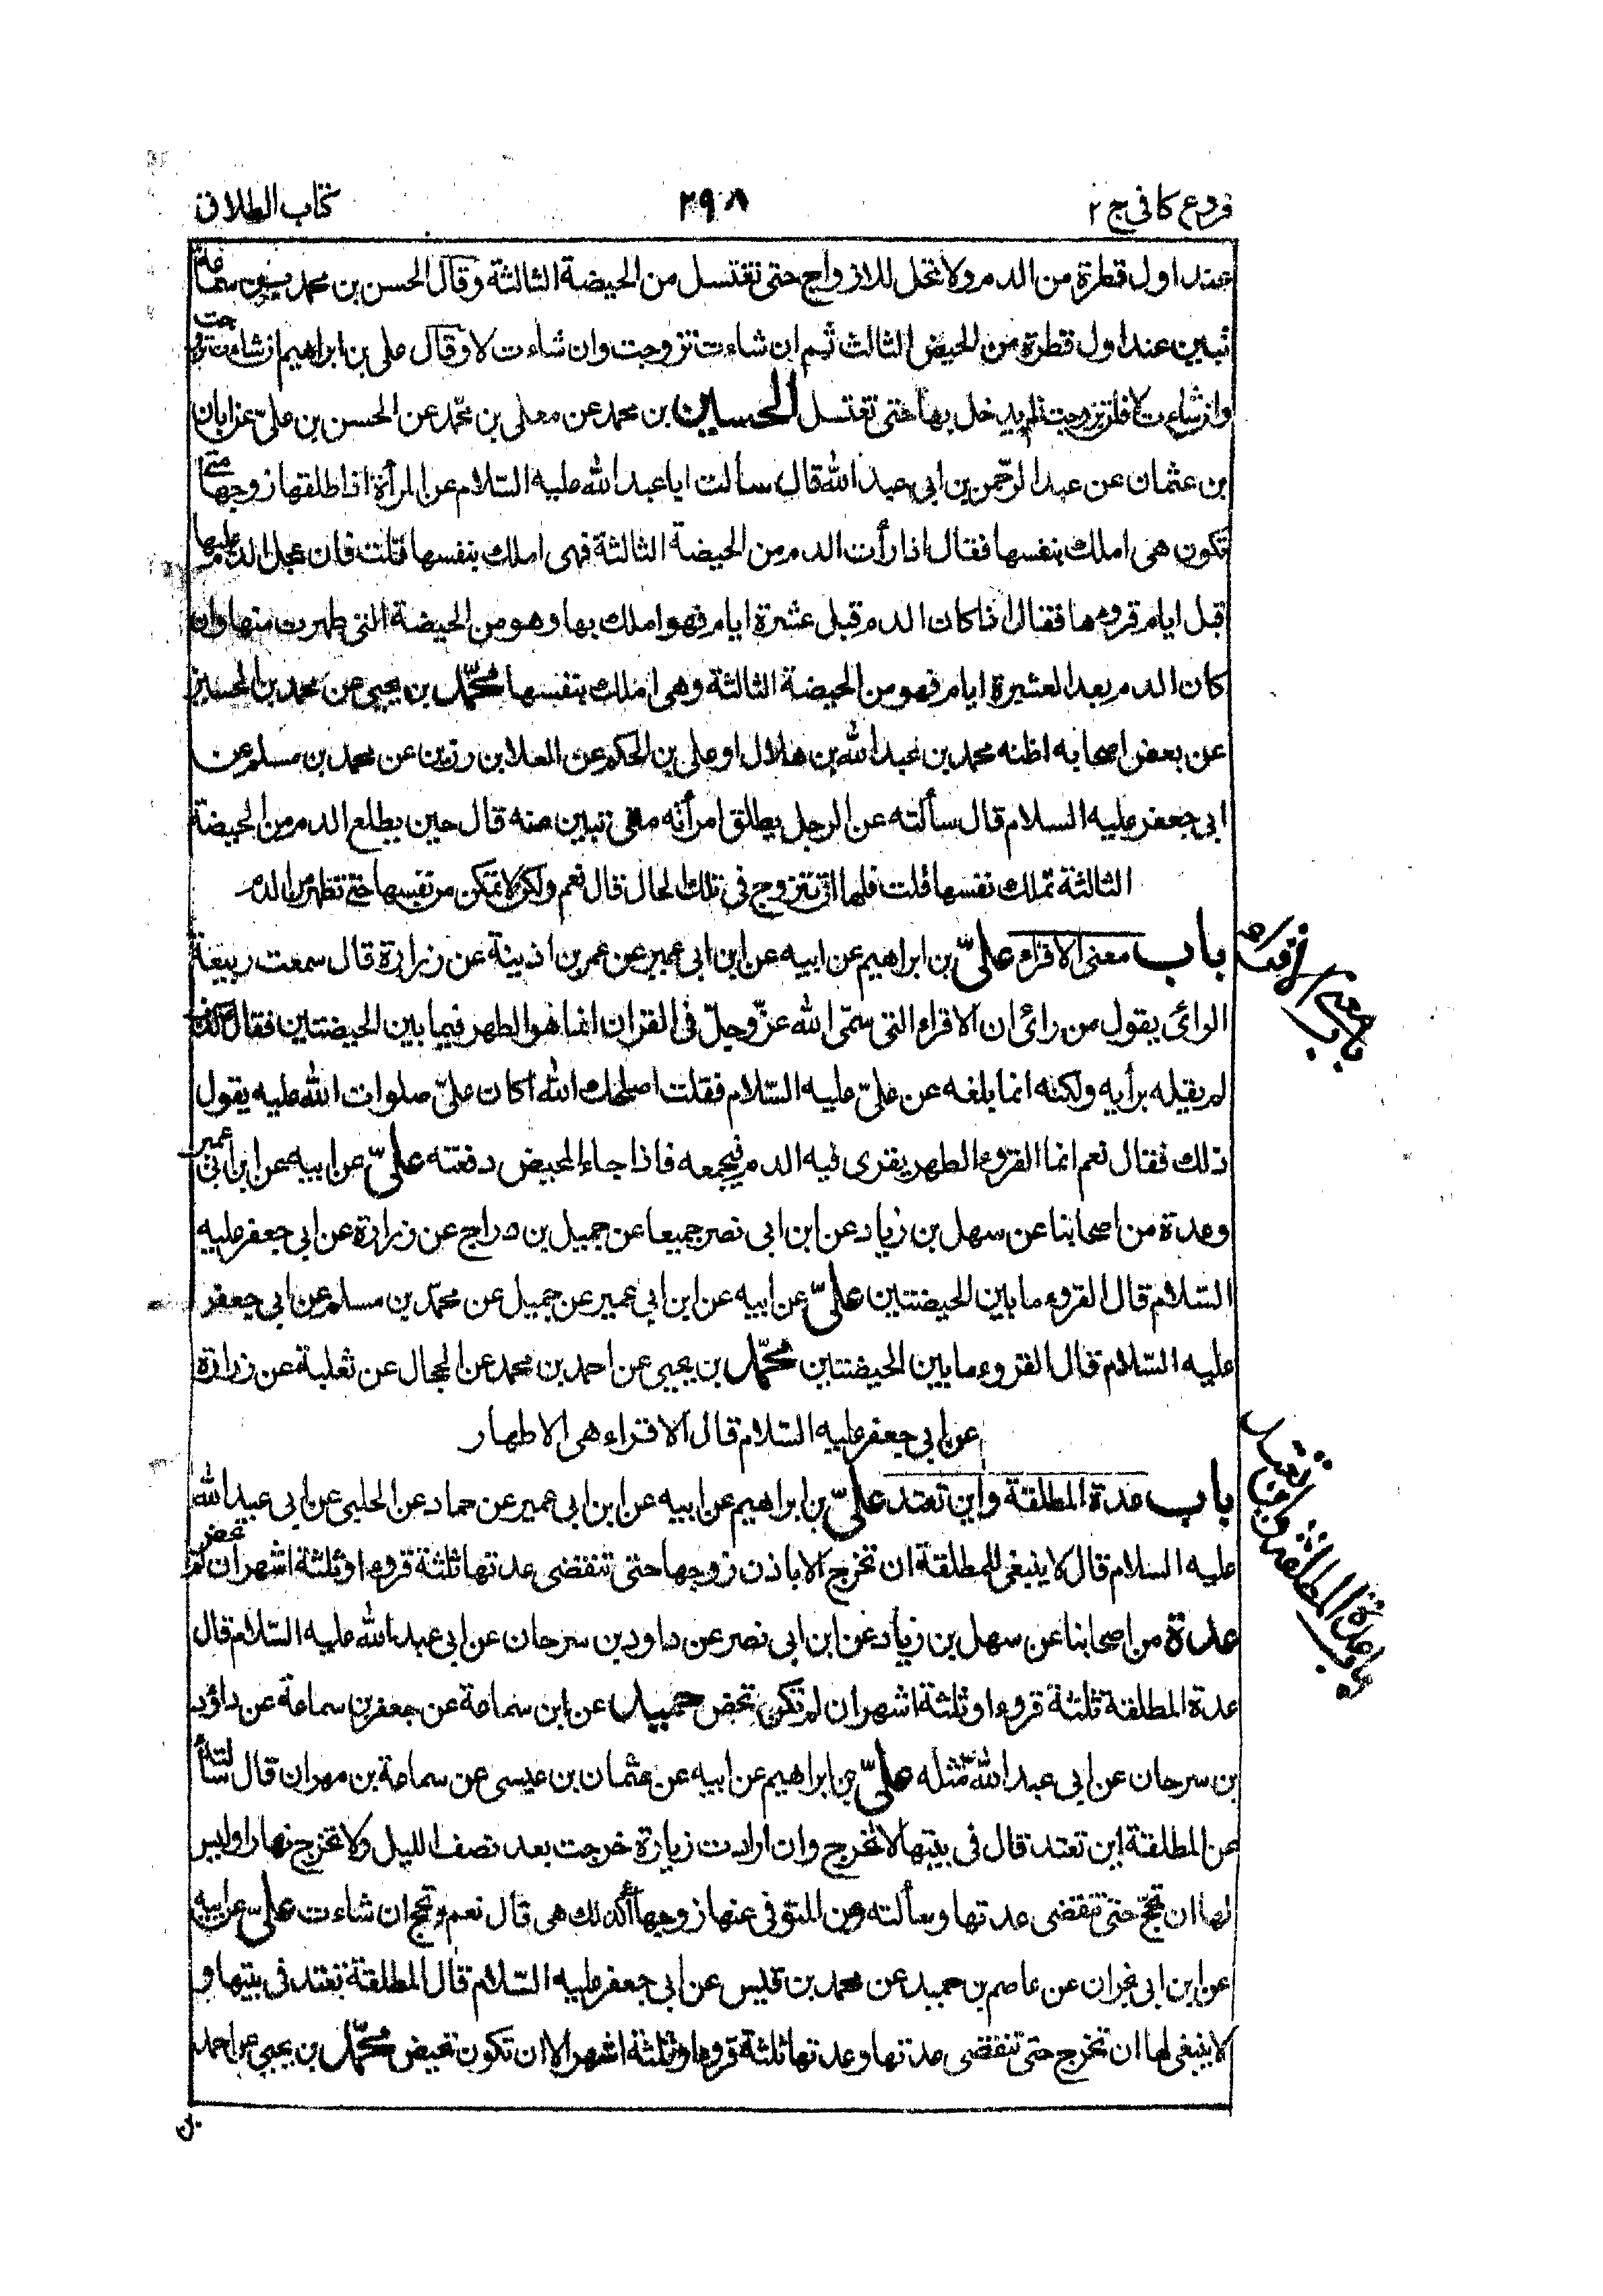 فروع كافى ج ٢
٢٩٨
كتاب الطلاق
عند اول قطرة من الدم ولا تحل للازواج حتى تغتسل من الحيضة الثالثة وقال الحسن بن محمد بن سماعة
تبين عند اول قطرة من الحيض الثالث ثم ان شاءت تزوجت وان شاءت لا وقال على بن ابراهيم ان شاءت تزوجت
وان شاءت لا فان تزوجت لم يدخل بها حتى تغتسل الحسين بن محمد عن معلى بن محمّد عن الحسن بن علىّ عن ابان
بن عثمان عن عبد الرّحمن بن ابى عبد الله قال سالت ابا عبد الله عليه السّلام عن المرأة اذا طلقها زوجها متى
تكون هى املك بنفسها فقال اذا رأت الدم من الحيضة الثالثة فهى املك بنفسها قلت فان عجل الدم عليها
قبل ايام قروءها فقال اذا كان الدم قبل عشرة ايام فهو املك بها وهو من الحيضة التى طهرت منها وان
كان الدم بعد العشرة ايام فهو من الحيضة الثالثة وهى املك بنفسها محمّد بن يحيى عن محمد بن الحسين
عن بعض اصحابه اظنه محمد بن عبد الله بن هلال او على بن الحكم عن العلا بن رزين عن محمد بن مسلم عن
ابى جعفر عليه السلام قال سألته عن الرجل يطلق امرأته متى تبين منه قال حين يطلع الدم من الحيضة
الثالثة تملك نفسها قلت فلها ان تتزوج فى تلك الحال قال نعم ولكن لا تمكن من نفسها حتى تطهر من الدم
باب معنى الاقراء علىّ بن ابراهيم عن ابيه عن ابن ابى عمير عن عمر بن اذينة عن زرارة قال سمعت ربيعة
الرائى يقول من رائى ان الاقراء التى سمّى الله عزّ وجلّ فى القران انما هو الطهر فيما بين الحيضتين فقال كذب
لم يقله برأيه ولكنه انما بلغه عن علىّ عليه السّلام فقلت اصلحك الله اكان علىّ صلوات الله عليه يقول
ذلك فقال نعم انما القروء الطهر يقرى فيه الدم فيجمعه فاذا جاء المحيض دفعته علىّ عن ابيه عن ابن ابى عمير
وعدة من اصحابنا عن سهل بن زياد عن ابن ابى نصر جميعا عن جميل بن دراج عن زرارة عن ابى جعفر عليه
السّلام قال القروء ما بين الحيضتين علىّ عن ابيه عن ابن ابى عمير عن جميل عن محمّد بن مسلم عن ابى جعفر
عليه السّلام قال القروء ما بين الحيضتين محمّد بن يحيى عن احمد بن محمد عن الحجال عن ثعلبة عن زرارة
عن ابى جعفر عليه السّلام قال الاقراء هى الاطهار
باب عدة المطلقة واين تعتد علىّ بن ابراهيم عن ابيه عن ابن ابى عمير عن حماد عن الحلبى عن ابى عبد الله
عليه السلام قال لا ينبغى للمطلقة ان تخرج الا باذن زوجها حتى تنقضى عدتها ثلثة قروء او ثلثة اشهر ان لم تحض
عدة من اصحابنا عن سهل بن زياد عن ابن ابى نصر عن داود بن سرحان عن ابى عبد الله عليه السّلام قال
عدة المطلقة ثلثة قروء او ثلثة اشهر ان لم تكن تحض حميد عن ابن سماعة عن جعفر بن سماعة عن داؤد
بن سرحان عن ابى عبد الله مثله علىّ بن ابراهيم عن ابيه عن عثمان بن عيسى عن سماعة بن مهران قال سألته
عن المطلقة اين تعتد قال فى بيتها لا تخرج وان ارادت زيارة خرجت بعد نصف الليل ولا تخرج نهارا وليس
لها ان تحجّ حتى تنقضى عدتها وسألته عن المتوفى عنها زوجها أكذلك هى قال نعم وتحج ان شاءت علىّ عن ابيه
عن ابن ابى نجران عن عاصم بن حميد عن محمد بن قيس عن ابى جعفر عليه السّلام قال المطلقة تعتد فى بيتها و
لا ينبغى لها ان تخرج حتى تنقضى عدتها وعدتها ثلثة قروء او ثلثة اشهر الا ان تكون تحيض محمّد بن يحيى عن احمد
بن
باب معنى الاقراء
باب عدة المطلقة واين تعتد